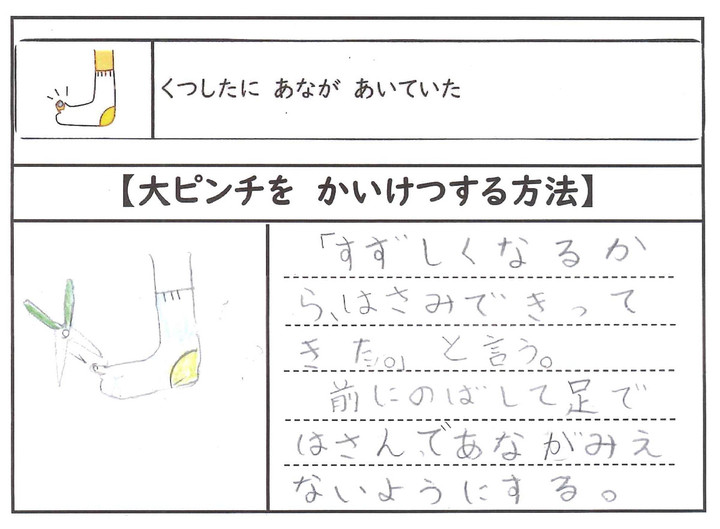 くつしたに あなが あいていた
【大ピンチを かいけつする方法】
「すずしくなるか
ら、はさみできって
きた。」と言う。
前にのばして足で
はさんであながみえ
ないようにする。